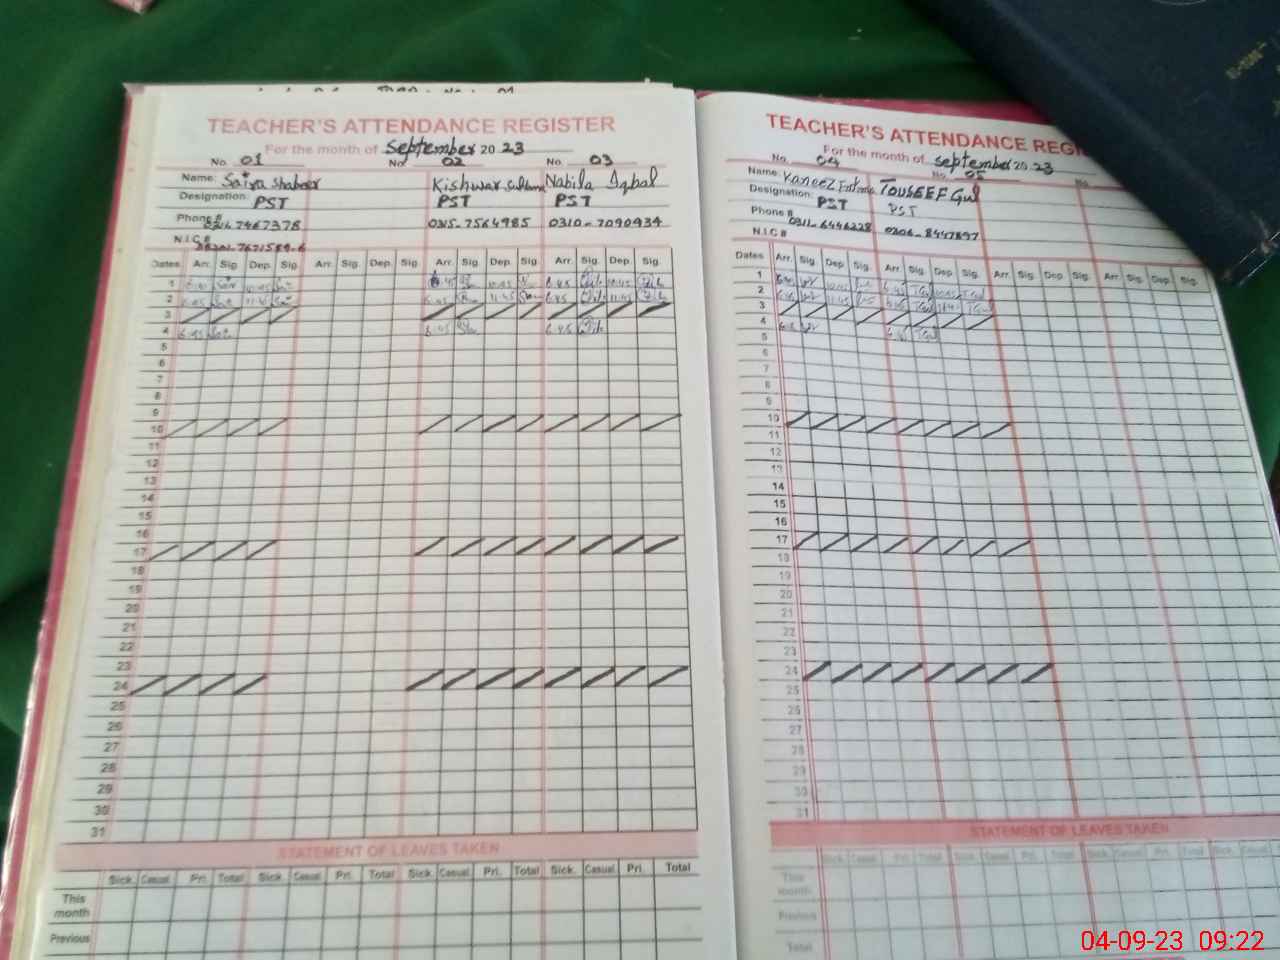 TEACHER'S ATTENDANCE REGISTER
For the month of September 20 23
No. 01 No 02 No. 03
Name: Saira Shabeer Kishwar Sultana Nabila Iqbal
Designation: PST PST PST
Phone # 7467378 0315-7564985 0310-7090934
N.I.C #
Dates Arr. Sig. Dep. Sig. Arr. Sig. Dep. Sig. Arr. Sig. Dep. Sig. Arr. Sig. Dep. Sig.
1 10:45
2 6.45 11:45 6.45 11:45 6.45 11:45
3
4 6.45 6.45 6.45
5
6
7
8
9
10
11
12
13
14
15
16
17
18
19
20
21
22
23
24
25
26
27
28
29
30
31
STATEMENT OF LEAVES TAKEN
Sick. Casual. Pri. Total Sick. Casual. Pri. Total Sick. Casual. Pri. Total Sick. Casual. Pri. Total
This month
Previous
TEACHER'S ATTENDANCE
For the month of September 20 23
No. 04 No. 05 No.
Name: Kaneez Fatima TOUSEEF Gul
Designation: PST PST
Phone # 0311-6446228 0306-8447897
N.I.C #
Dates Arr. Sig. Dep. Sig. Arr. Sig. Dep. Sig. Arr. Sig. Dep. Sig. Arr. Sig. Dep. Sig.
1
2
3
4
5
6
7
8
9
10
11
12
13
14
15
16
17
18
19
20
21
22
23
24
25
26
27
28
29
30
31
STATEMENT OF LEAVES TAKEN
Sick. Casual. Pri. Total Sick. Casual. Pri. Total Sick. Casual. Pri. Total Sick. Casual.
This month
Previous
Total
04-09-23 09:22